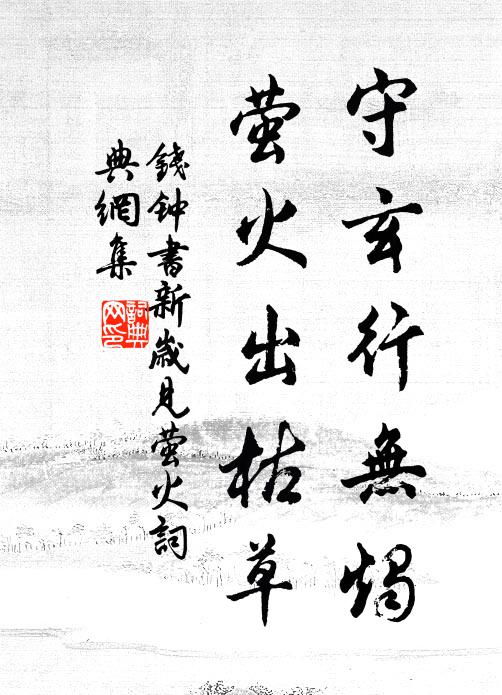 守玄行無燭
萤火出枯草
錢钟書新歲見萤火詞
典網集
詞典
网印